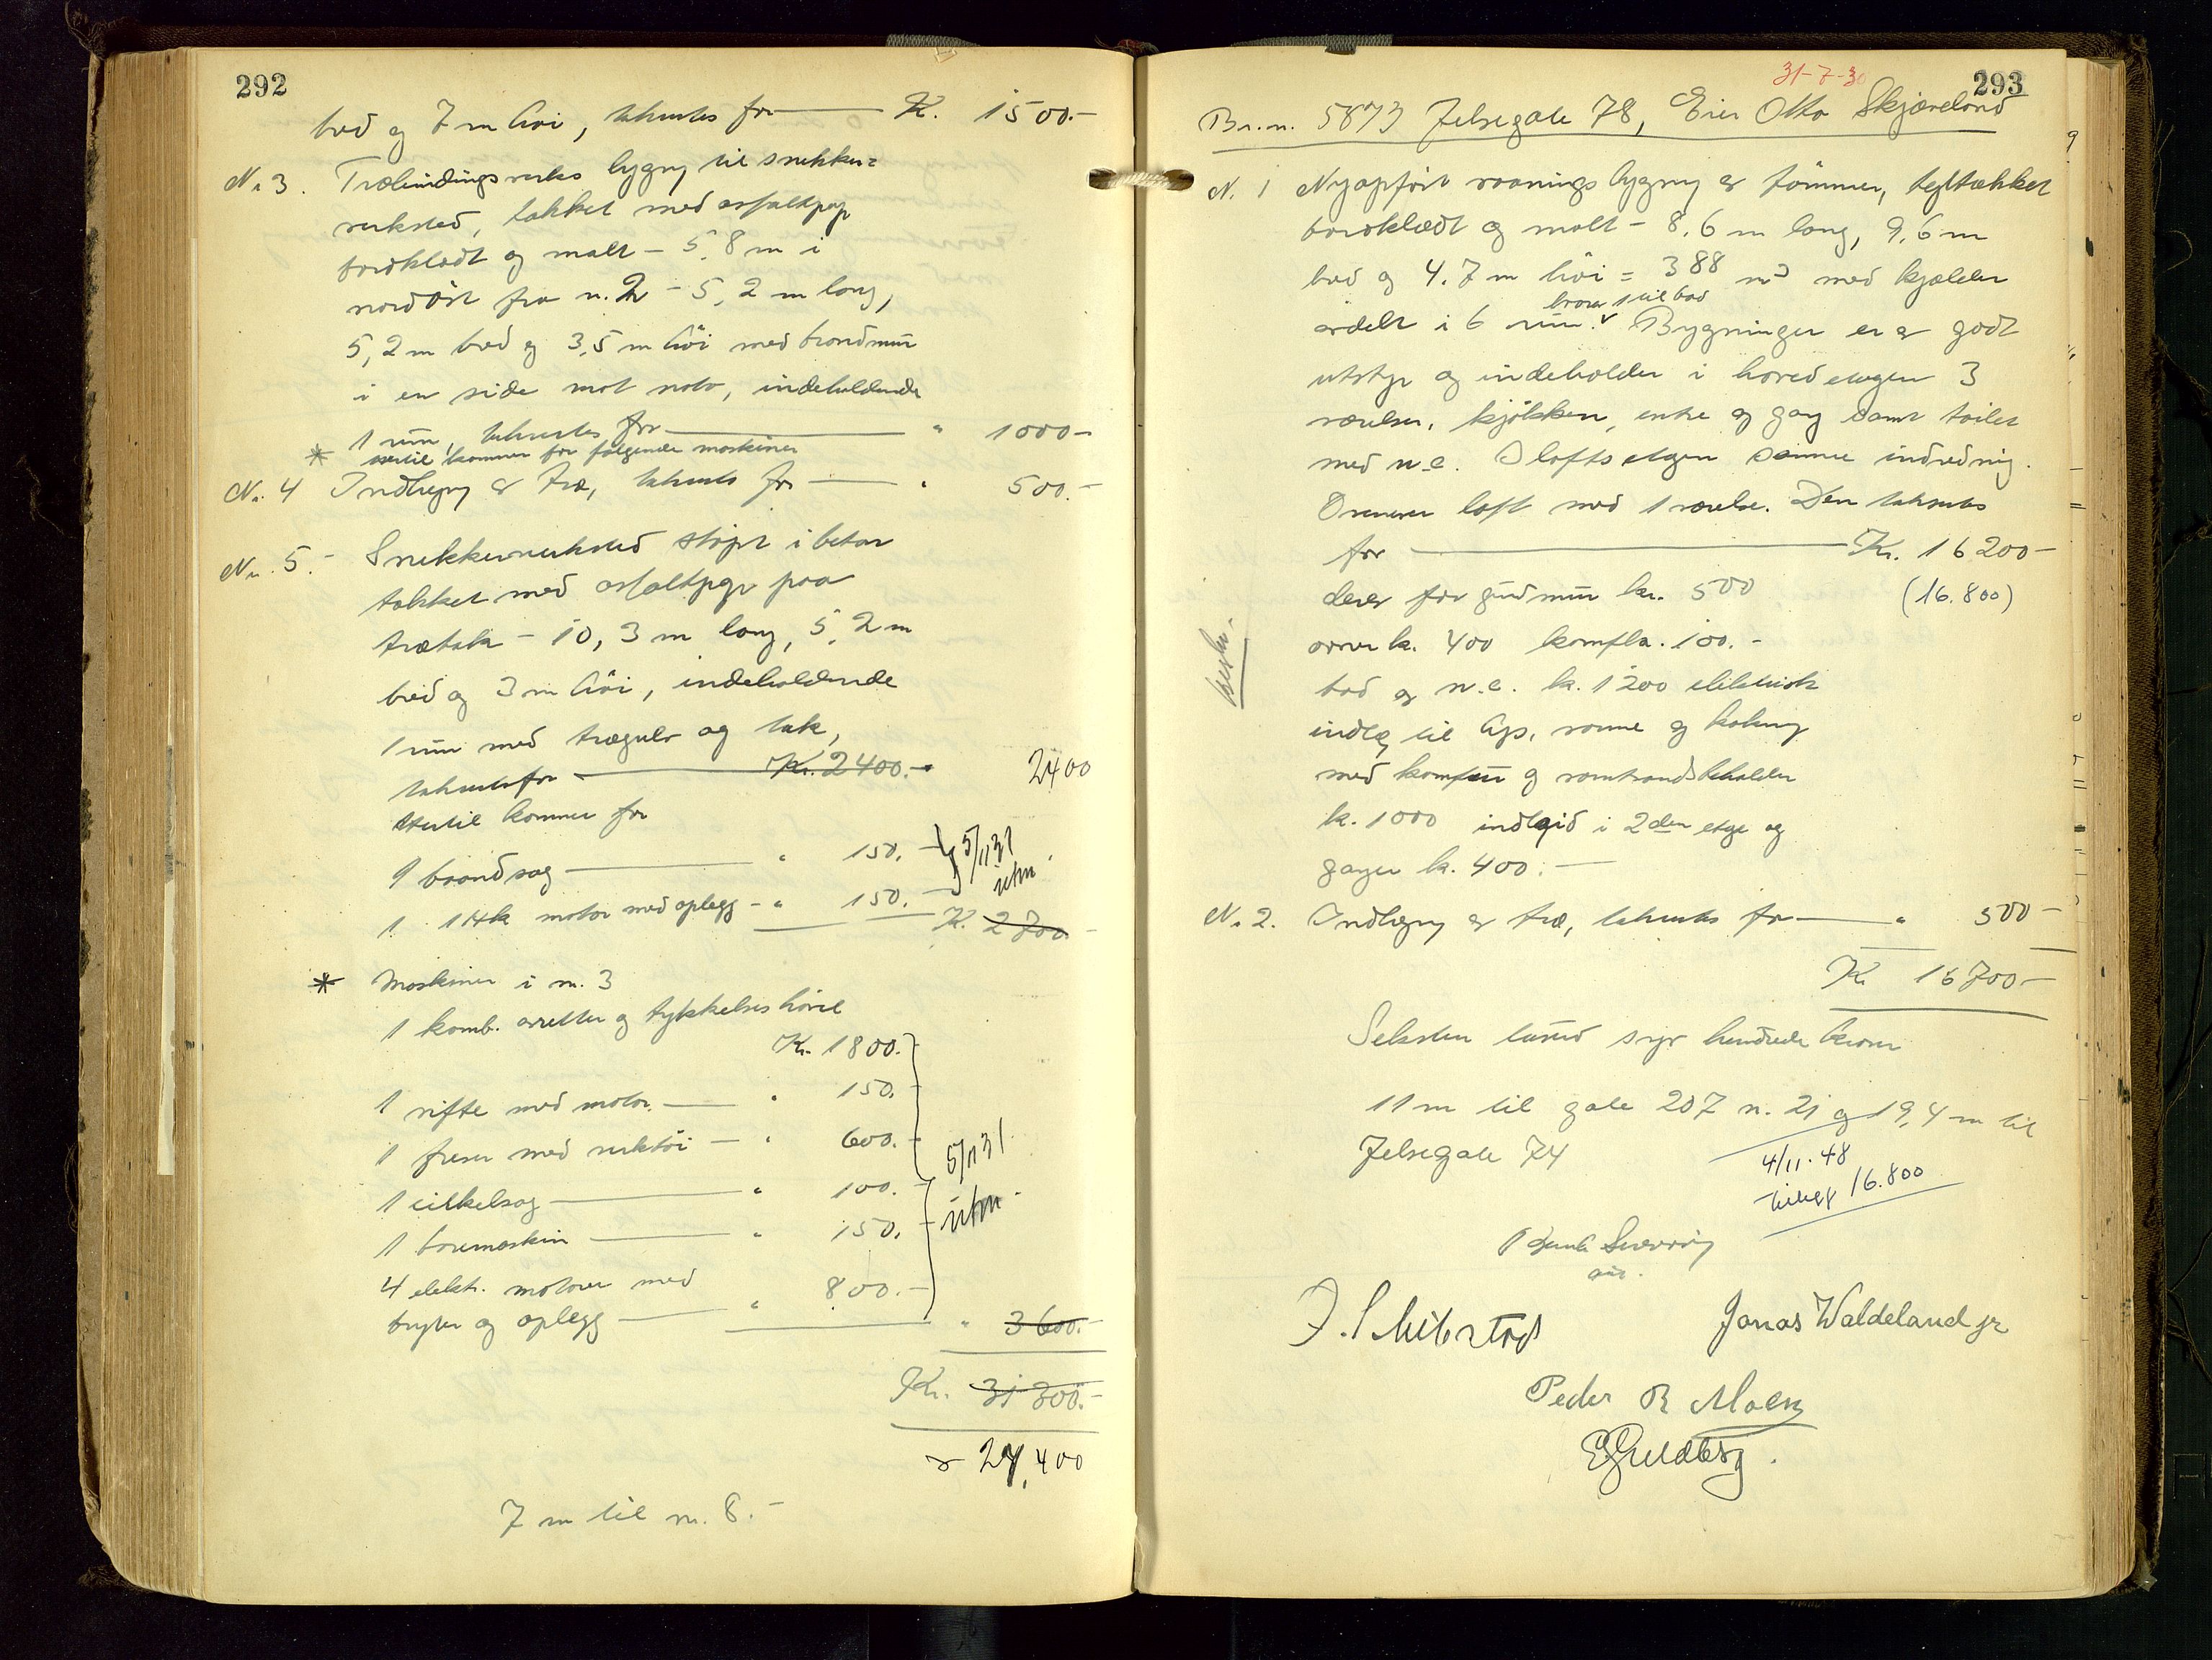 292
bred og 7 m høi, takseres for — K. 1500.-
N. 3. Træbindingsverks bygng til snekker=
verksted, takket med asfaltpap
bordklædt og malt - 5,8 m i
nordöst fra n. 2 - 5,2 m lang,
5,2 m bred og 3,5 m høi med brandmur
i en side mot nabo, indeholdende
1 rum, takseres for — " 1000-
* Hertil kommer for følgende maskiner
N. 4 Indhegng af træ, takseres for — " 500.-
Nr. 5.- Snekkerverksted støpt i beton
takket med asfaltpap paa
trætak - 10,3 m lang, 5,2 m
bred og 3 m høi, indeholdende
1 rum med trægulv og tak,
takseres for — Kr. 2400.- 2400
Hertil kommer for
1 baandsag — " 150.- 5/11 31
1 1 Hk motor med oplegg - " 150.- utm.
K. 2700.-
* Maskiner i n. 3
1 komb. avretter og tykkelseshövel
Kr. 1800.-
1 vifte med motor — " 150.-
1 freser med verktöi — " 600.-
1 cirkelsag — " 100.- 5/11 31
1 boremaskin — " 150.- utm.
4 elektr. motorer med
bryter og oplegg — " 800.-
" 3600.-
Kr. 31300.-
24,400
7 m til n. 8.-
31-7-30
293
Br.n. 5873 Jelsegate 78, Eier Otto Skjæveland
N. 1 Nyopført vaanings bygng af tömmer, teglttækket
bordklædt og malt - 8,6 m lang, 9,6 m
bred og 4.7 m høi = 388 m3 med kjælder
avdelt i 6 rum. hvorav 1 til bad Bygningen er af godt
utstyr og indeholder i hovedetagen 3
værelser, kjøkken, entre og gang samt toilet
med w.c. I loftsetagen samme indredning.
Övenover loft med 1 værelse. Den takseres
for — Kr. 16200-
derav for grundmur kr. 500 (16.800)
ovner k. 400 komfla. 100.-
bad og w.c. k. 1200 elektrisk
indlæg til lys, varme og kokning
med komfur og varmtvandsbeholder
k. 1000 i 2den etge og
gangen k. 400.-
N. 2. Indhegng af træ, takseres for — " 500-
K 16700-
Seksten tusend syv hundrede kroner
11 m til gate 207 n. 21 og 19,4 m til
Jelsegate 74
4/11.48
tillegg 16.800
Jonas Waldeland jr
Peder R Maeng
E Guldberg.